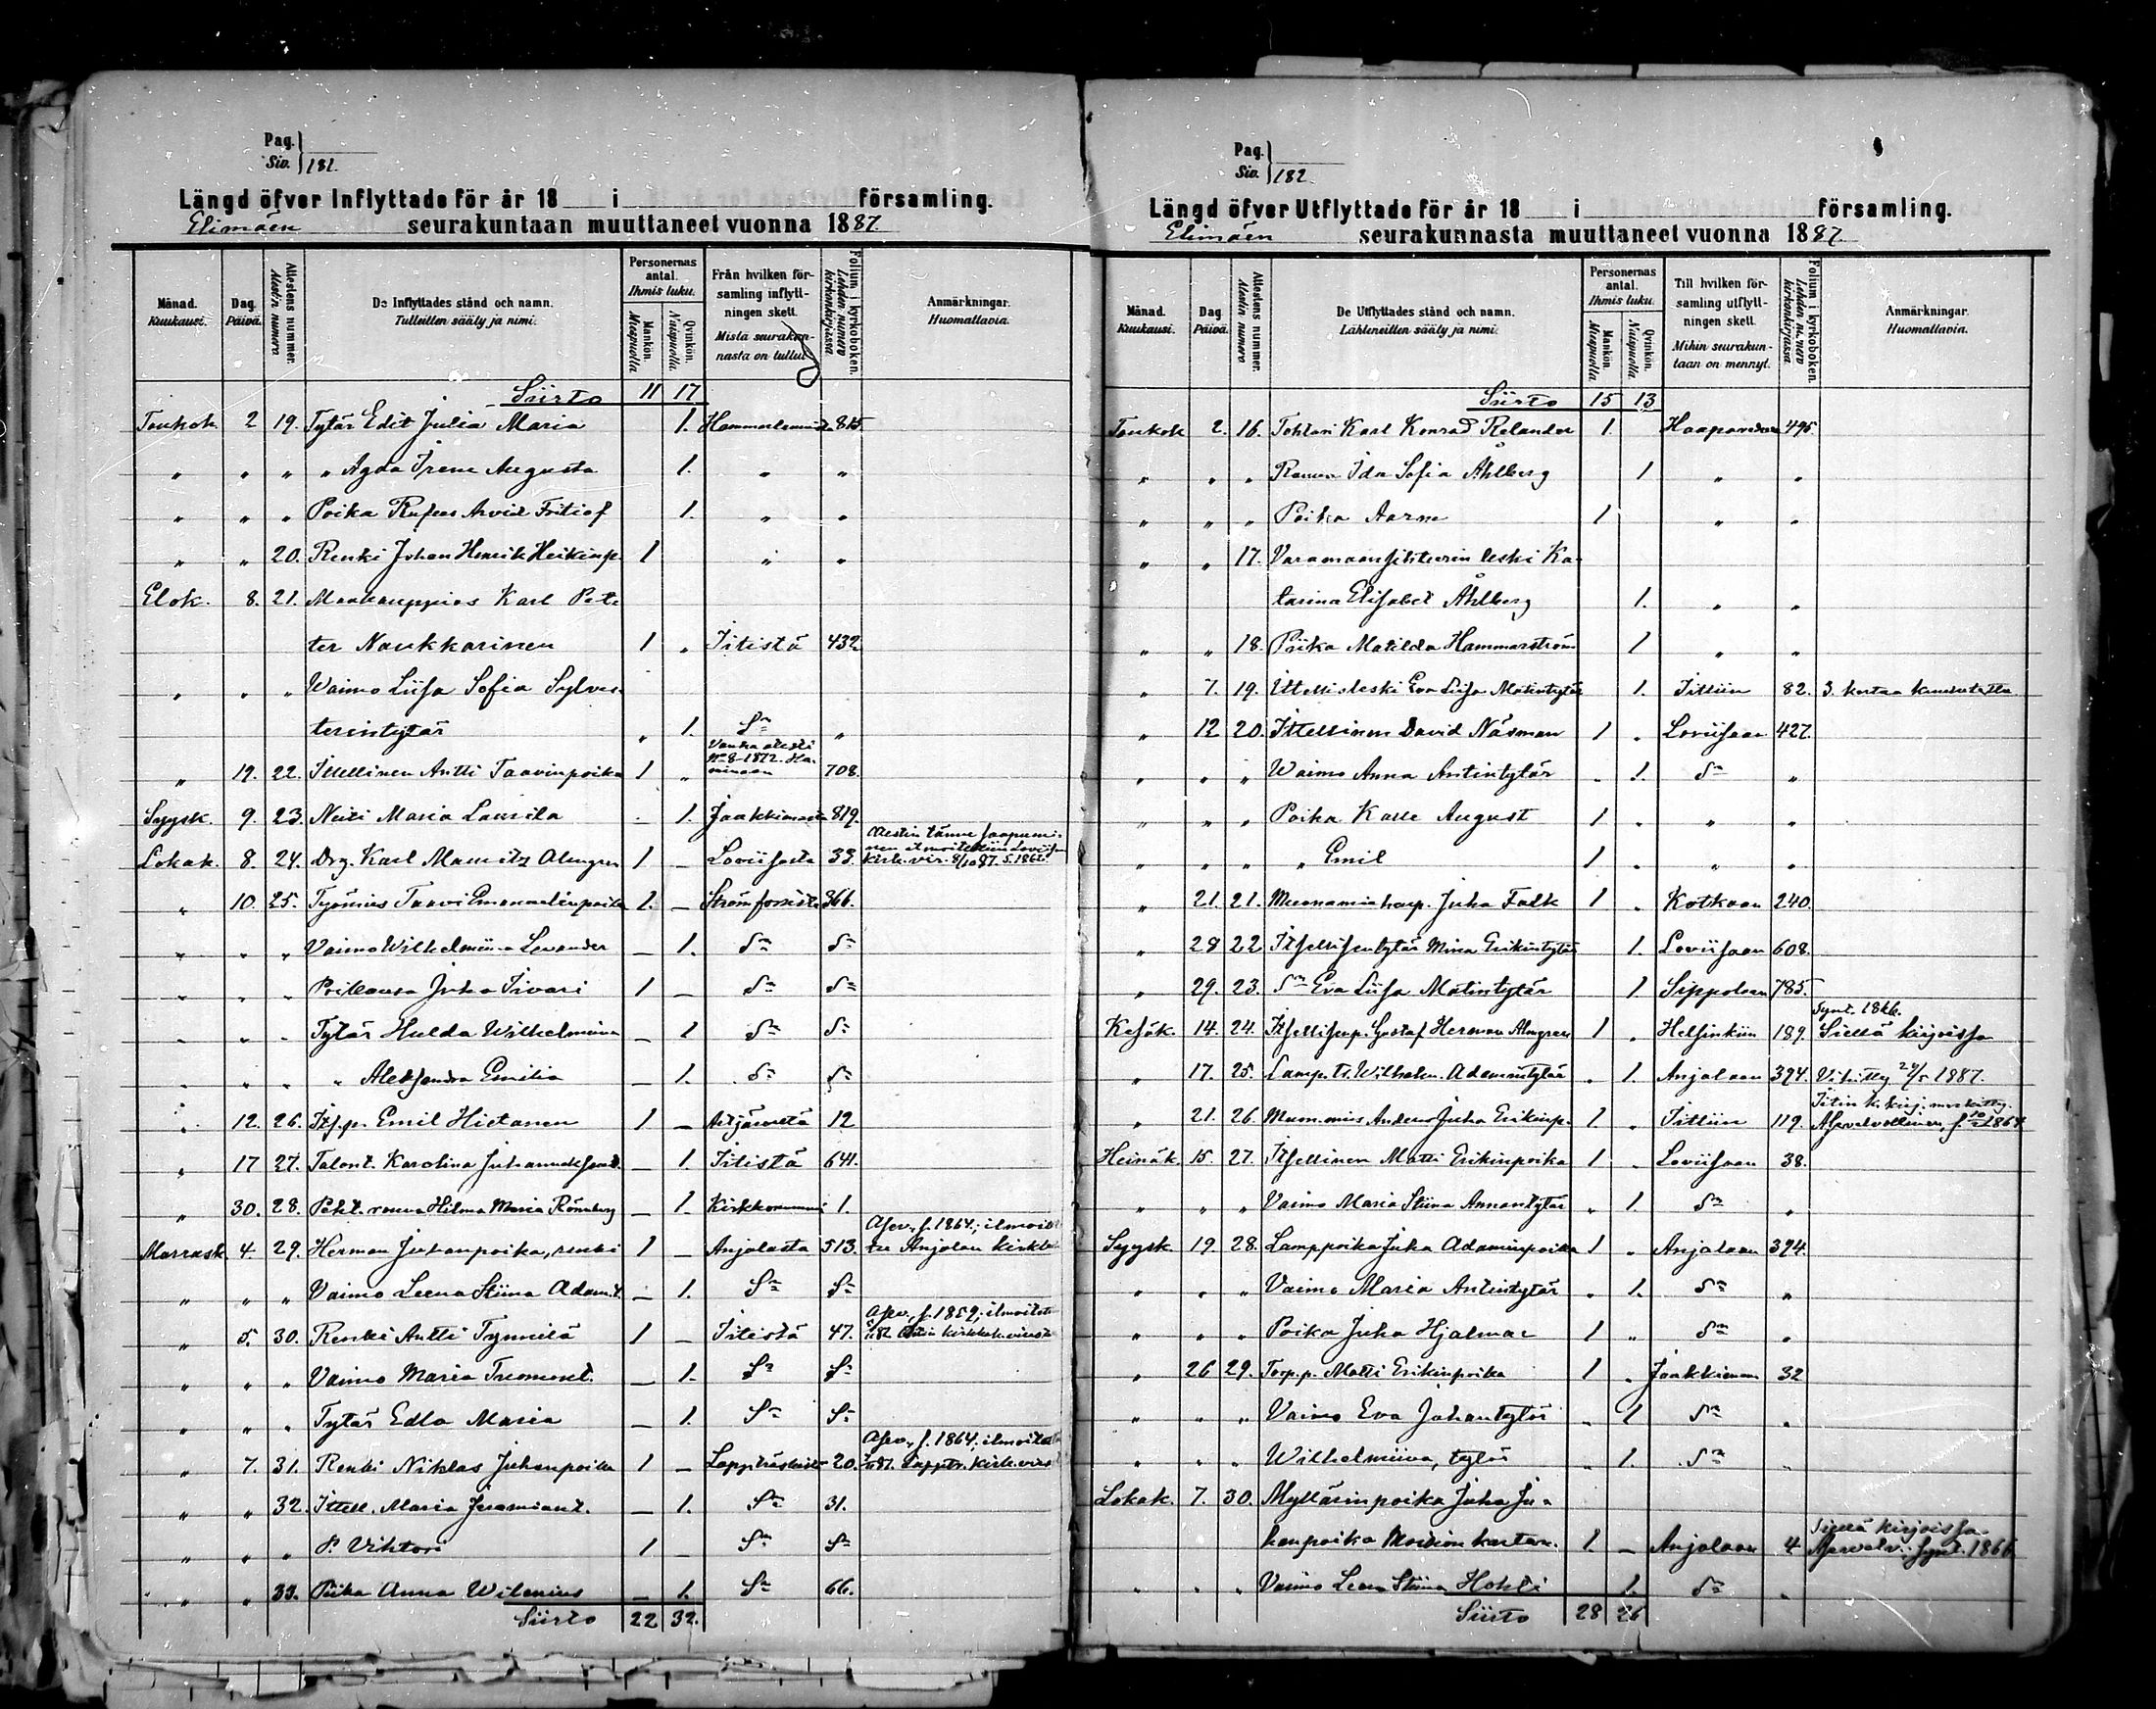 Pag.
Siv. 181.
Längd öfver Inflyttade för år 18 i församling.
Elimäen seurakuntaan muuttaneet vuonna 1887.
Månad. Kuukausi. Dag. Päivä. Attestens nummer. Atestin numero De Inflyttades stånd och namn. Tulleitten sääty ja nimi. Personernas antal. Ihmis luku. Mankön. Miespuolia Qvinkön. Naispuolia Från hvilken församling inflyttningen skett. Mistä seurakunnasta on tullut Folium i kyrkoboken. Lehden numero kirkonkirjassa Anmärkningar. Huomattavia.
Siirto 11 17
Toukok. 2 19. Tytär Edit Julia Maria 1. 815
" " " " Agda Irene Augusta 1. " "
" " " Poika Rufus Arvid Fritiof 1. " "
" " 20. Renki Johan Henrik Heikinp. 1 " "
Elok. 8. 21. Maakauppias Karl Pete
ter Naukkarinen 1 " Iitistä 432
" " " Waimo Liisa Sofia Sylves-
terintytär " 1. Sn "
" 19. 22. Ittellinen Antti Taavinpoika 1 " Vanha atesti No 8-1872. Haminaan 708.
Syysk. 9. 23. Neiti Maria Laurila - 1. Jaakkimasta 819.
Lokak. 8. 24. Drg. Karl Mauritz Almgren 1 - Loviisasta 33. kirk. vir. 8/10 87. s. 1862
" 10. 25. Työmies Taavi Emanuelinpoika 1. - Strömforsista 366.
" " " Vaimo Wilhelmiina Levander - 1. Sn Sn
" " " Poikansa Juho Iivari 1 - Sn Sn
" " " Tytär Hulda Wilhelmiina - 1 Sn Sn
" " " " Aleksandra Emilia - 1. Sn Sn
" 12. 26. Its.p. Emil Hietanen 1 - Artjärveltä 12
" 17 27. Talont. Karolina - 1. Iitistä 641.
" 30. 28. rouva Hilma Maria Rönnberg - 1. Kirkkonummi 1.
Marrask. 4. 29. Herman Juhanpoika, renki 1 - Anjalasta 513. Asev. s. 1864; ilmoitettu Anjalan kirk
" " " Vaimo Leena Stiina Adam.t. - 1. Sn Sn
" 5. 30. Renki Antti Tynnilä 1 - Iitistä 47. Asev. s. 1859; ilmoitettu
" " " Vaimo Maria Tuomont. - 1. Sn Sn
" " " Tytär Edla Maria - 1. Sn Sn
" 7. 31. Renki Niklas Juhanpoika 1 - Lappträskistä 20. Asev. s. 1864; ilmoitettu
" " 32. Ittell. Maria Jeremiant. - 1. Sn 31.
" " " P. Vihtori 1 - Sn Sn
" " 33. Piika Anna Wilenius - 1. Sn 66.
Siirto 22 32.
Pag.
Siv. 182.
Längd öfver Utflyttade för år 18 i församling.
Elimäen seurakunnasta muuttaneet vuonna 1887.
Månad. Kuukausi. Dag Päivä. Attestens nummer. Atestin numero De Utflyttades stånd och namn. Lähteneitten sääty ja nimi. Personernas antal. Ihmis luku. Mankön. Miespuolia Qvinkön. Naispuolia Till hvilken församling utflyttningen skett. Mihin seurakuntaan on mennyt. Folium i kyrkoboken. Lehden numero kirkonkirjassa Anmärkningar. Huomattavia.
Siirto 15 13
Toukok 2. 16. Tohtori Karl Konrad Relander 1. 495.
" " " Rouva Ida Sofia Åhlberg 1 " "
" " " Poika Aarne 1 " "
" " 17. Varamaansihteerin leski Ka-
tarina Elisabet Åhlberg 1. " "
" " 18. Piika Matilda Hammarström 1 " "
" 7. 19. Ittellisleski Eva Liisa Matintytär 1. Iittiin 82. 3. kertaa kuulutettu
" 12 20. Ittellinen David Näsman 1 " Loviisaan 427.
" " " Waimo Anna Antintytär " 1. Sn "
" " " Poika Kalle August 1 " " "
" " " " Emil 1 " " "
" 21. 21. Juho Falk 1 " Kotkaan 240.
" 28 22 Itsellisentytär Mina Erikintytär 1. Loviisaan 608.
" 29. 23. Sn Eva Liisa Matintytär 1 Sippolaan 785.
Kesäk. 14. 24. Itsellisenp. Gustaf Herman Almgren 1 " Helsinkiin 189. Synt. 1866. Siellä kirjoissa
" 17. 25. Lamp. t. Wilhelm. Adamintytär " 1. Anjalaan 394. Vihitty 29/5 1887.
" 21. 26. Anders Juho Erikinp. 1. " Iittiin 119. Asevelvollinen, s. 10/2 1864
Heinäk. 15. 27. Itsellinen Matti Erikinpoika 1 " Loviisaan 38.
" " " Vaimo Maria Stiina Annantytär " 1 Sn "
Syysk. 19. 28. Lamppoika Juho Adaminpoika 1 " Anjalaan 394.
" " " Vaimo Maria Antintytär " 1. Sn "
" " " Poika Juho Hjalmar 1 " Sn "
" 26 29. Torp.p. Matti Erikinpoika 1 " Jaakkimaan 32
" " " Vaimo Eva Juhantytär " 1 Sn "
" " " Wilhelmiina, tytär " 1. Sn "
Lokak. 7. 30. Myllärinpoika Juho Ju-
hanpoika Moision kartan. 1. - Anjalaan 4 Siellä kirjoissa. Asevelv. synt. 1866
" " " Vaimo Leena Stiina Hokli 1. Sn "
Siirto 28 26